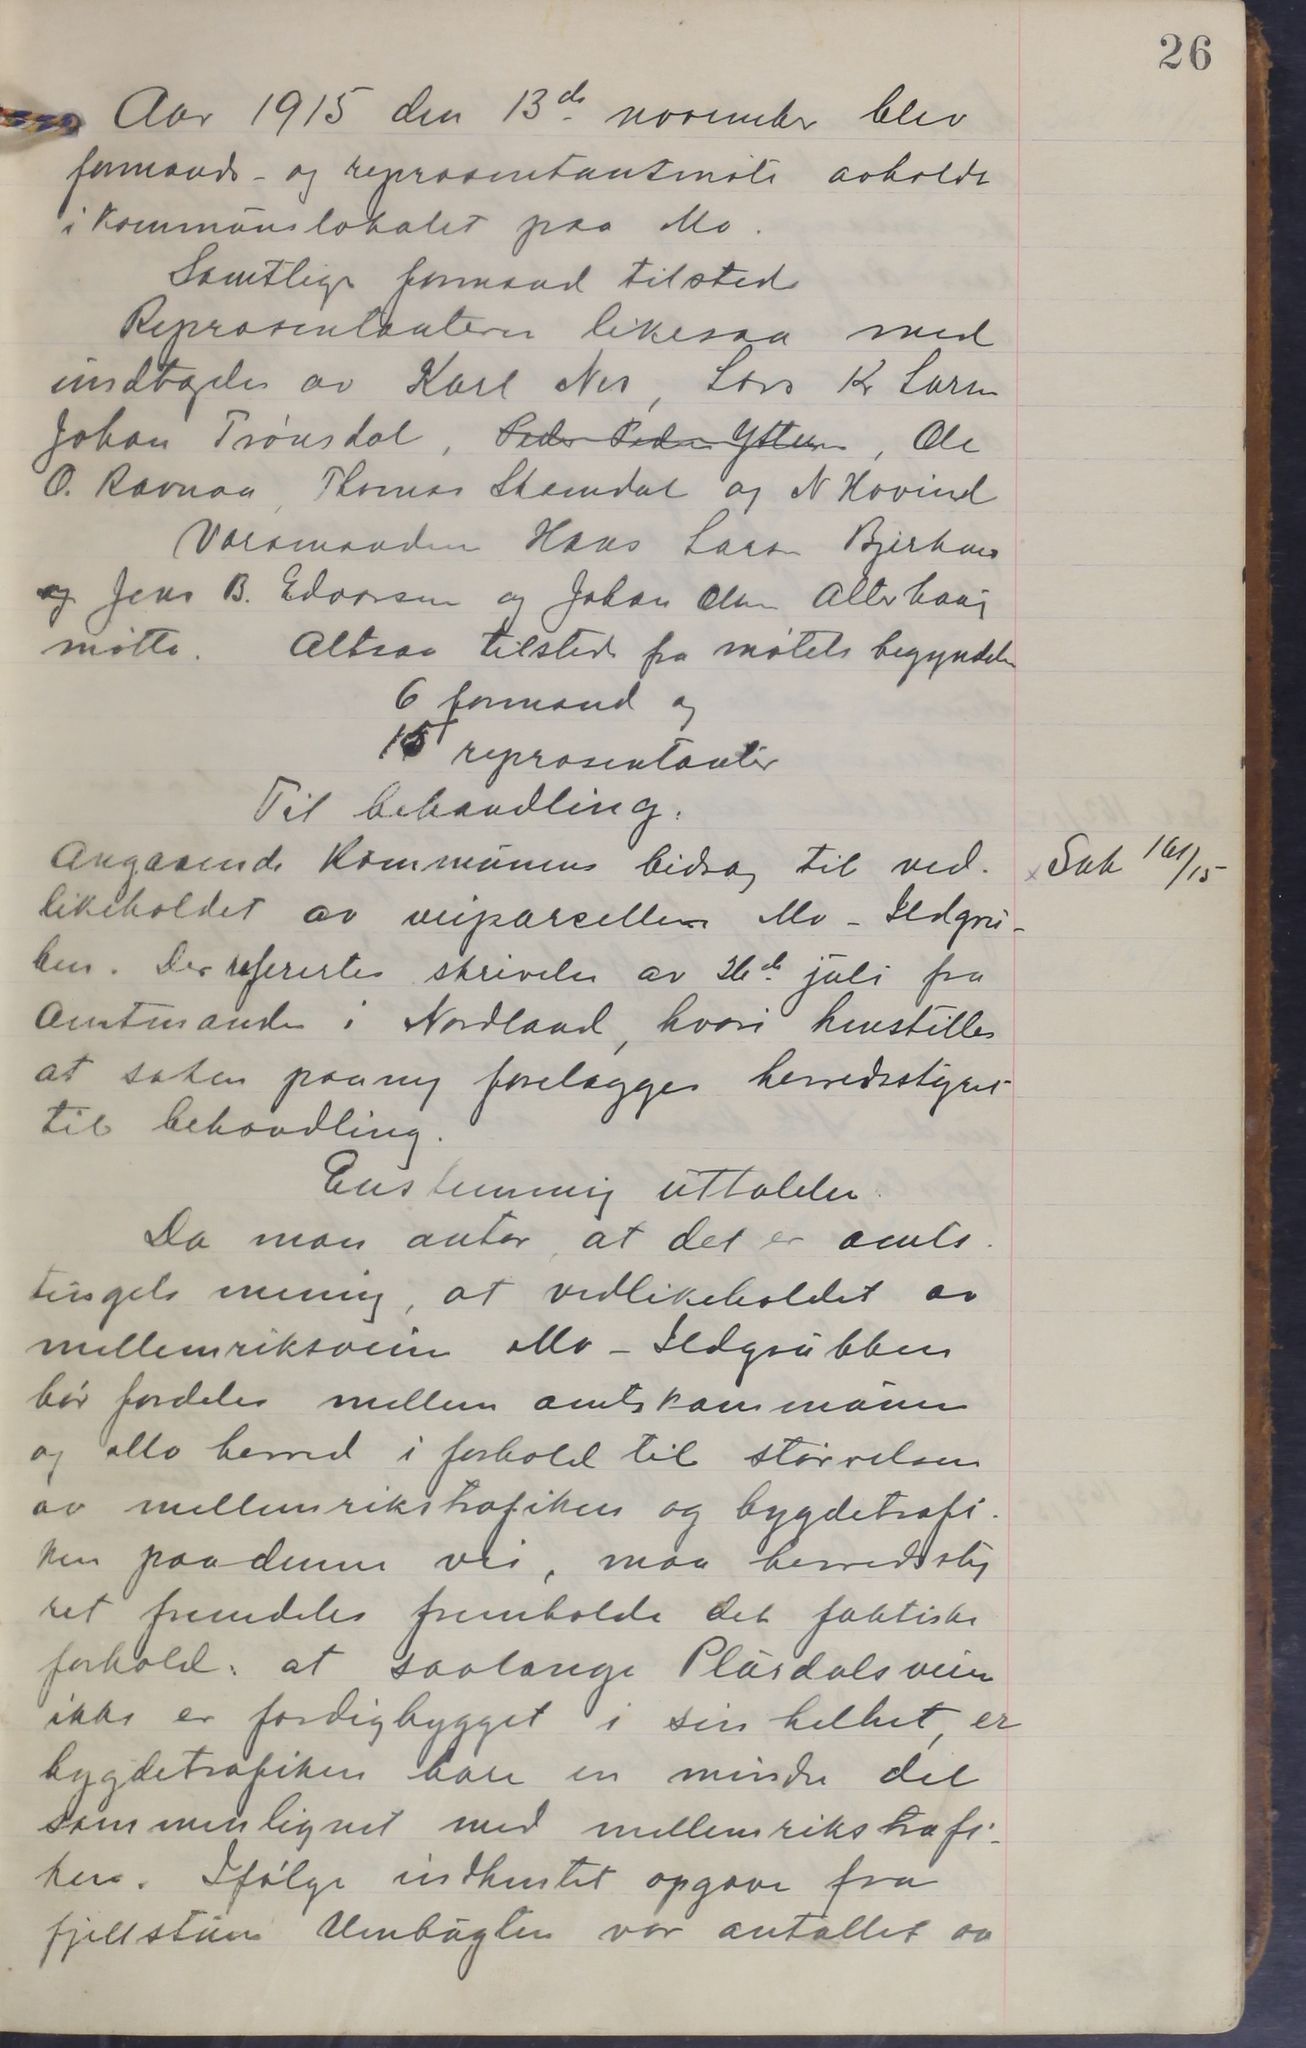 26
Aar 1915 den 13de november blev
formands- og repræsentantmøte avholdt
i kommunelokalet paa Mo.
Samtlige formænd tilstede
Repræsentanterne likesaa med
undtagelse av Karl Nes, Lars Kr Larsen
Johan Trønsdal, Peder Peder Ytteren, Ole
O. Ravnaa, Thomas Skamdal og N Hovind
Varamændene Hans Larsen Bjerkmo
og Jens B. Edvarsen og Johan Olsen Alterhaug
møtte. Altsaa tilstede fra møtets begyndelse
6 formænd og
15 repræsentanter
Til behandling:
Angaaende kommunens bidrag til ved-
likeholdet av veiparcellen Mo - Ildgru-
ben. Der refertes skrivelse av 26de juli fra
Amtmanden i Nordland, hvori henstilles
at saken paany forelægges herredsstyret
til behandling.
Enstemmig uttalelse:
Da man antar, at det er amts-
tingets mening, at vedlikeholdet av
mellemriksveien Mo - Ildgrubben
bør fordeles mellem amtskommunen
og Mo herred i forhold til størrelsen
av mellemrikstrafiken og bygdetrafi-
ken paa denne vei, maa herredssty
ret fremdeles fremholde det faktiske
forhold: at saalænge Plurdalsveien
ikke er færdigbygget i sin helhet, er
bygdetrafiken bare en mindre del
sammenlignet med mellemrikstrafi-
ken. Ifølge indhentet opgave fra
fjellstuen Umbugten var antallet av
Sak 161/15